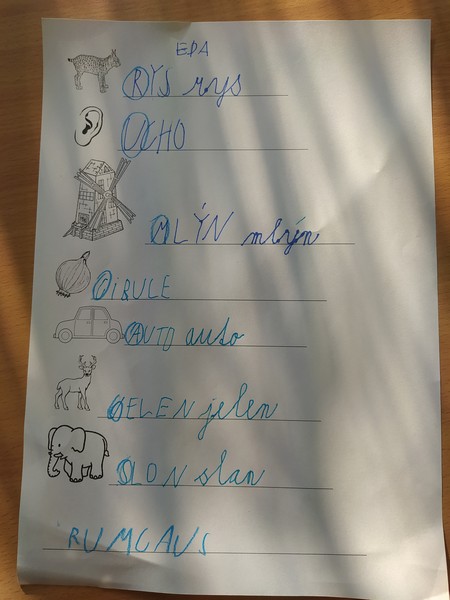 EDA
RYS rys
UCHO
MLÝN mlýn
CIBULE
AUTO auto
JELEN jelen
SLON slan
RUMCAJS